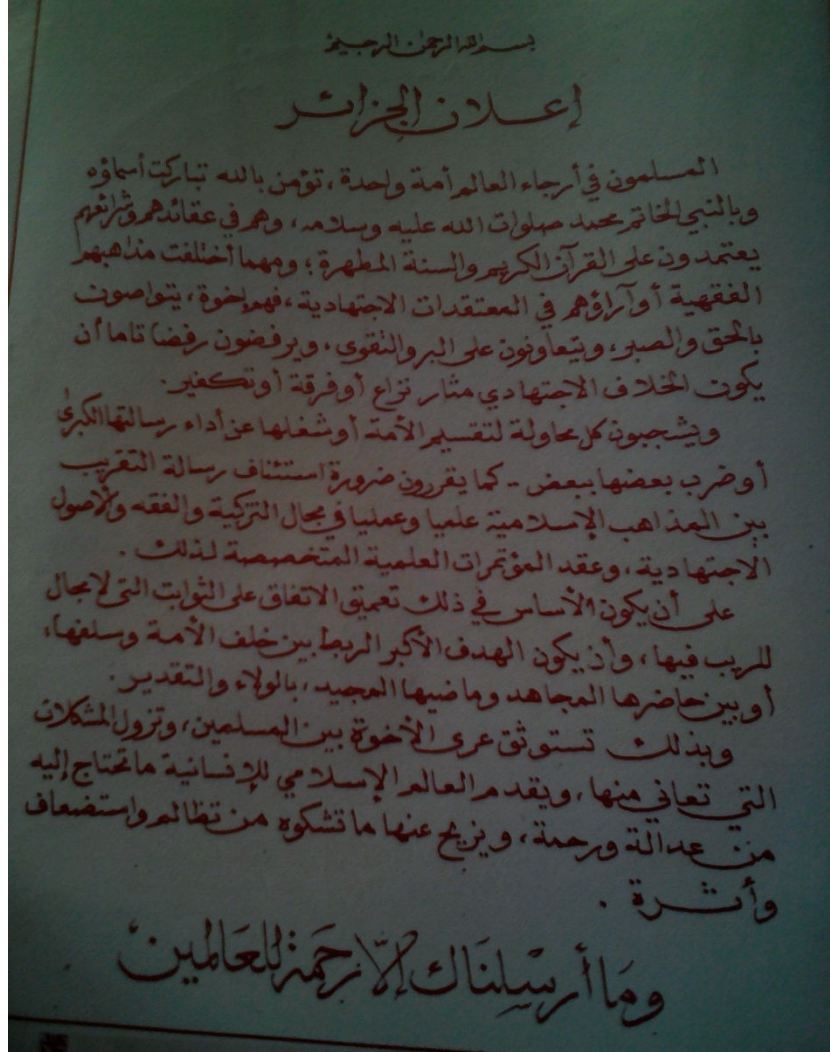 بسم الله الرحمن الرحيم
إعلان الجزائر
المسلمون في أرجاء العالم أمة واحدة، تؤمن بالله تباركت أسماؤه
وبالنبي الخاتم محمد صلوات الله عليه وسلامه، وهم في عقائدهم وشرائعهم
يعتمدون على القرآن الكريم والسنة المطهرة؛ ومهما أختلفت مذاهبهم
الفقهية أو آراؤهم في المعتقدات الاجتهادية، فهم إخوة، يتواصون
بالحق والصبر، ويتعاونون على البر والتقوى، ويرفضون رفضا تاما أن
يكون الخلاف الاجتهادي مثار نزاع أو فرقة أو تكفير.
ويشجبون كل محاولة لتقسيم الأمة أو شغلها عن أداء رسالتها الكبرى
أو ضرب بعضها ببعض - كما يقررون ضرورة استئناف رسالة التقريب
بين المذاهب الإسلامية علميا وعمليا في مجال التزكية والفقه والأصول
الاجتهادية، وعقد المؤتمرات العلمية المتخصصة لذلك.
على أن يكون الأساس في ذلك تعميق الاتفاق على الثوابت التي لا مجال
للريب فيها، وأن يكون الهدف الأكبر الربط بين خلف الأمة وسلفها،
أو بين حاضرها المجاهد وماضيها المجيد، بالولاء والتقدير.
وبذلك تستوثق عرى الأخوة بين المسلمين، وتزول المشكلات
التي تعاني منها، ويقدم العالم الإسلامي للإنسانية ما تحتاج إليه
من عدالة ورحمة، ويزيح عنها ما تشكوه من تظالم واستضعاف
وأثرة.
وَمَا أرْسلنَاك إلَّا رَحمَة للعَالمين